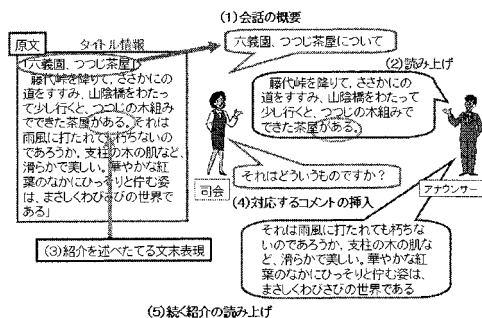 (1)会話の概要
原文
タイトル情報
「六義園、つつじ茶屋」
藤代峠を降りて、ささかにの
道をすすみ、山陰橋をわたっ
て少し行くと、つつじの木組み
でできた茶屋がある。それは
雨風に打たれても朽ちないの
であろうか。支柱の木の肌など、
滑らかで美しい。華やかな紅
葉のなかにひっそりと佇む姿
は、まさしくわびさびの世界で
ある」
(3)紹介を述べたてる文末表現
六義園、つつじ茶屋について
(2)読み上げ
藤代峠を降りて、ささかにの
道をすすみ、山陰橋をわたって
少し行くと、つつじの木組みで
できた茶屋がある。
それはどういうものですか？
司会
アナウンサー
(4)対応するコメントの挿入
それは雨風に打たれても朽ちな
いのであろうか、支柱の木の肌な
ど、滑らかで美しい。華やかな紅
葉のなかにひっそりと佇む姿は、
まさしくわびさびの世界である
(5)続く紹介の読み上げ